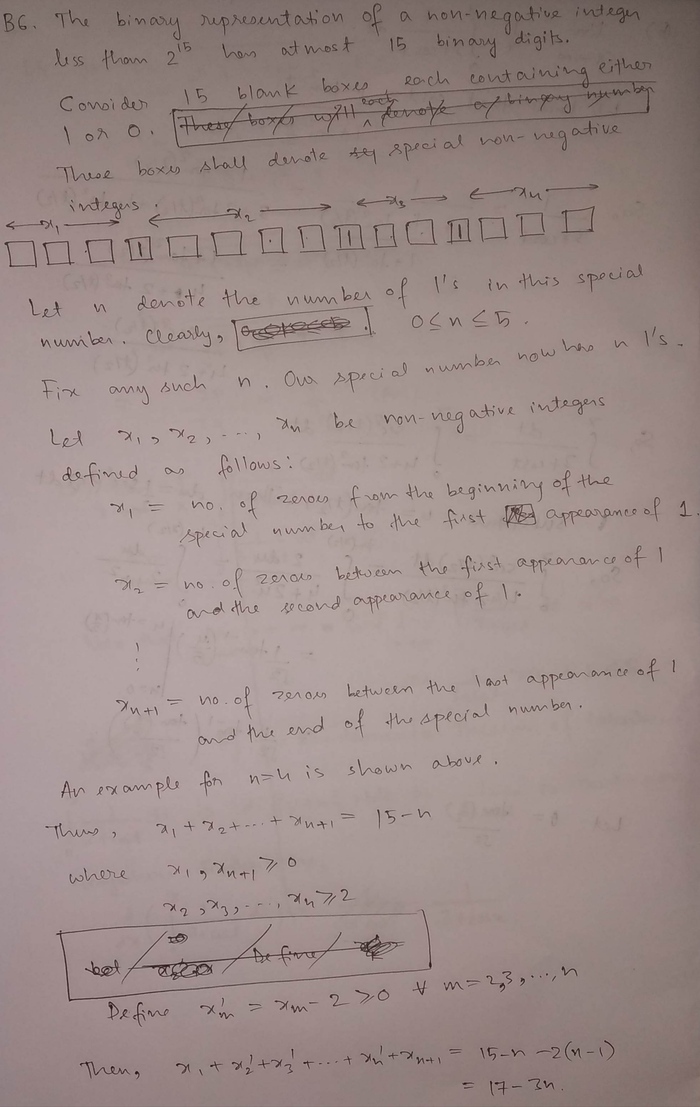 B6. The binary representation of a non-negative integer
less than 2^15 has atmost 15 binary digits.
Consider 15 blank boxes, each containing either
1 or 0. These boxes will each denote a binary number
These boxes shall denote special non-negative
integers.
x₁ x₂ x₃ x₄
1 1 1
Let n denote the number of 1's in this special
number. Clearly, 0 ≤ n ≤ 5.
Fix any such n. Our special number now has n 1's.
Let x₁, x₂, ..., xₙ be non-negative integers
defined as follows:
x₁ = no. of zeroes from the beginning of the
special number to the first appearance of 1.
x₂ = no. of zeroes between the first appearance of 1
and the second appearance of 1.
⋮
xₙ₊₁ = no. of zeroes between the last appearance of 1
and the end of the special number.
An example for n=4 is shown above.
Thus, x₁ + x₂ + ... + xₙ₊₁ = 15-n
where x₁, xₙ₊₁ ≥ 0
x₂, x₃, ..., xₙ ≥ 2
Let Define
Define x'ₘ = xₘ - 2 ≥ 0 ∀ m = 2,3, ..., n
Then, x₁ + x₂' + x₃' + ... + xₙ' + xₙ₊₁ = 15-n-2(n-1)
= 17-3n.